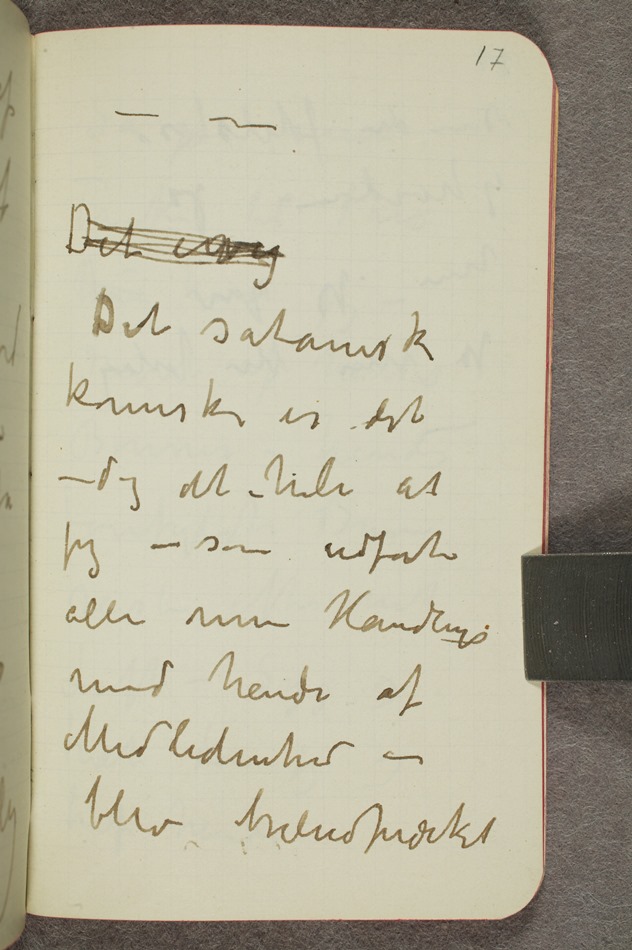 17
— —
Det
Det satanisk
komiske er det
– og det hele at
jeg – som udførte
alle mine Handlinger
mod hende af
Medlidenhed –
blev brændmærket